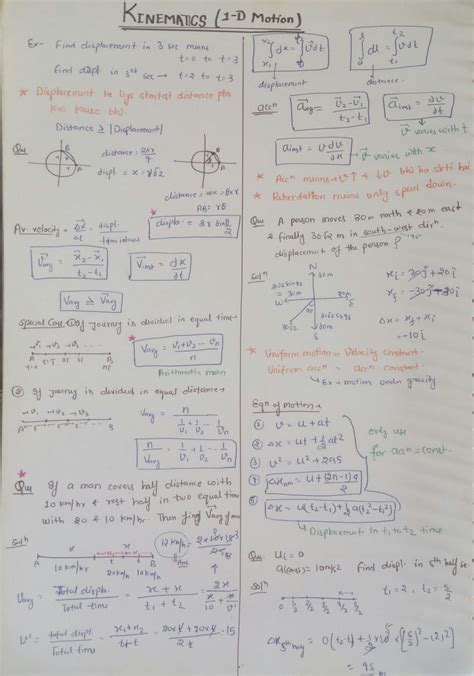 KINEMATICS (1-D Motion)
Ex- Find displacement in 3 sec means
t=0 to t=3
Find displ. in 3rd sec → t=2 to t=3
* Displacement ke liye started distance pta
kro kause bhi.
Distance ≥ |Displacement|
Que
distance = 2πr/4
displ. = r√2
displ. = 2r sin θ/2
Av. velocity = displ.
V⃗avg = x⃗2-x⃗1 / t2-t1
V⃗inst = dx⃗/dt
Vavg ≥ V⃗avg
Special Case- ① If journey is divided in equal time-
Vavg = v1+v2...vn / n
Arithmetic mean
② If journey is divided in equal distance→
Vavg = n / 1/v1 + 1/v2 ... 1/vn
Que If a man covers half distance with
10 km/hr & rest half in two equal time
with 20 & 10 km/hr. Then find V⃗avg
Solⁿ
12 km/h
10 km/hr
20 km/h 10 km/h
Vavg = Total displ. / Total time = x + x / t1 + t2 = 2x / x/10 + x/v'
v' = total displ. / Total time = x1+x2 / t+t = 15
displacement
distance
accⁿ a⃗avg = v⃗2-v⃗1 / t2-t1
a⃗inst = dv⃗/dt
v varies with t
ainst = v dv/dx
v⃗ varies with x
* Accⁿ means → v↑ & ↓v bhi ho skti hai
* Retardation means only speed down.
Que A person moves 30m north & 20m east
& finally 30√2 m in south-west dirⁿ.
displacement of the person?
Solⁿ
N
W
S
30m
30√2
xi = 30j+20i
xf = -30j-30i
Δx = xf + xi
= -10i
* Uniform motion = Velocity constant.
Uniform accⁿ = accⁿ constant.
Ex → motion under gravity
Eqⁿ of motion→
① v = u + at
② Δx = ut + 1/2 at²
③ v² = u² + 2as
④ Δxnth = u + (2n-1)a/2
⑤ Δx = u(t2-t1) + 1/2 a(t2²-t1²)
only use
for accⁿ = const.
→ Displacement in t1 to t2 time
Que. ui = 0
a(const) = 10m/s² Find displ. in 5th half sec
Solⁿ
t1 = 2, t2 = 5/2